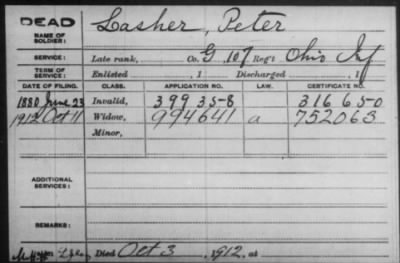 DEAD Lasher, Peter
NAME OF SOLDIER:
SERVICE: Late rank, Co. G, 107 Reg't Ohio Inf
TERM OF SERVICE: Enlisted , 1 Discharged , 1
DATE OF FILING. CLASS. APPLICATION NO. LAW. CERTIFICATE NO.
1880 June 23 Invalid, 399358 316650
1912 Oct 11 Widow, 994641 a 752063
Minor,
ADDITIONAL SERVICES:
REMARKS:
Died Oct 3, 1912, at